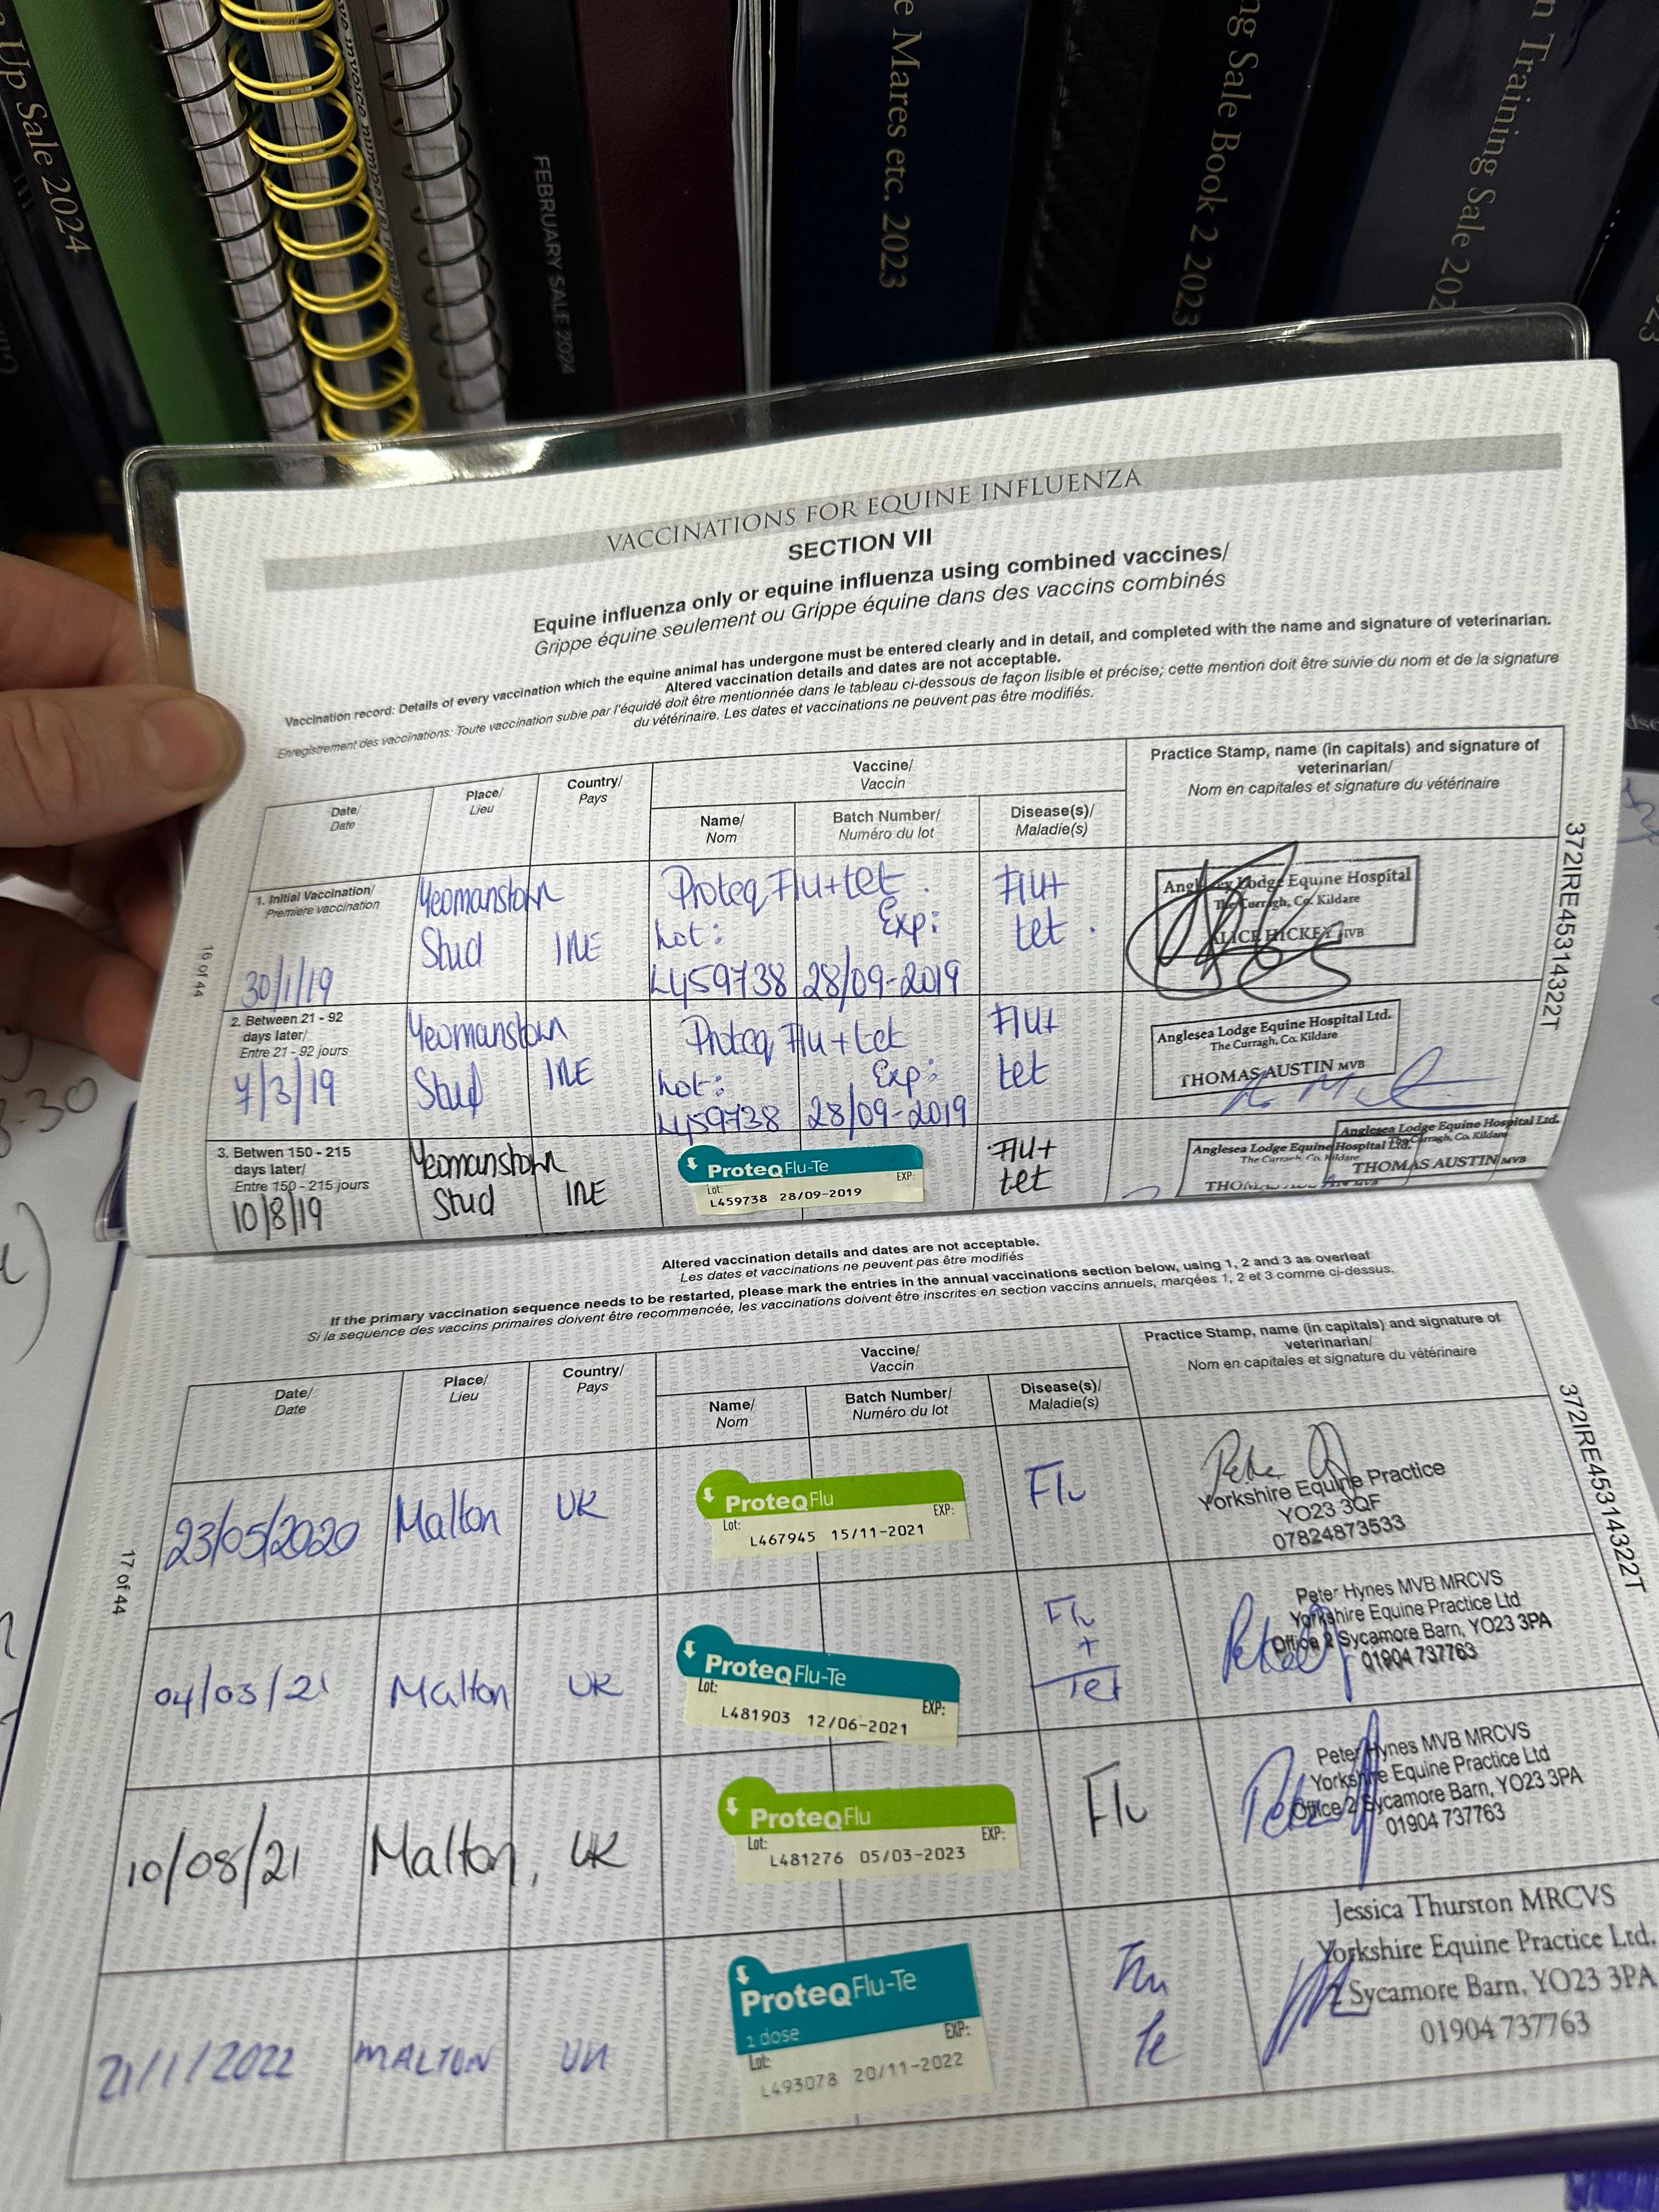 Up Sale 2024
FEBRUARY SALE 2024
Mares etc. 2023
Sale Book 2 2023
Training Sale
VACCINATIONS FOR EQUINE INFLUENZA
SECTION VII
Equine influenza only or equine influenza using combined vaccines/
Grippe équine seulement ou Grippe équine dans des vaccins combinés
Vaccination record: Details of every vaccination which the equine animal has undergone must be entered clearly and in detail, and completed with the name and signature of veterinarian.
Altered vaccination details and dates are not acceptable.
Enregistrement des vaccinations: Toute vaccination subie par l'équidé doit être mentionnée dans le tableau ci-dessous de façon lisible et précise; cette mention doit être suivie du nom et de la signature
du vétérinaire. Les dates et vaccinations ne peuvent pas être modifiés.
Date/
Date
Place/
Lieu
Country/
Pays
Vaccine/
Vaccin
Name/
Nom
Batch Number/
Numéro du lot
Disease(s)/
Maladie(s)
Practice Stamp, name (in capitals) and signature of
veterinarian/
Nom en capitales et signature du vétérinaire
1. Initial Vaccination/
Premiere vaccination
30/1/19
Yeomanstown
Stud
IRE
Proteq Flu+tet.
Lot: Exp:
L459738 28/09-2019
Flu+
tet.
Anglesea Lodge Equine Hospital
The Curragh, Co. Kildare
ALICE HICKEY MVB
2. Between 21 - 92
days later/
Entre 21 - 92 jours
7/3/19
Yeomanstown
Stud
IRE
Proteq Flu+tet
Lot: Exp:
L459738 28/09-2019
Flu+
tet
Anglesea Lodge Equine Hospital Ltd.
The Curragh, Co. Kildare
THOMAS AUSTIN MVB
3. Betwen 150 - 215
days later/
Entre 150 - 215 jours
10/8/19
Yeomanstown
Stud
IRE
ProteqFlu-Te
Lot: EXP:
L459738 28/09-2019
Flu+
tet
Anglesea Lodge Equine Hospital Ltd.
The Curragh, Co. Kildare
Anglesea Lodge Equine Hospital Ltd.
The Curragh, Co. Kildare
THOMAS AUSTIN MVB
16 of 44
372IRE45314322T
Altered vaccination details and dates are not acceptable.
Les dates et vaccinations ne peuvent pas être modifiés
If the primary vaccination sequence needs to be restarted, please mark the entries in the annual vaccinations section below, using 1, 2 and 3 as overleaf
Si la sequence des vaccins primaires doivent être recommencée, les vaccinations doivent être inscrites en section vaccins annuels, marqées 1, 2 et 3 comme ci-dessus.
Date/
Date
Place/
Lieu
Country/
Pays
Vaccine/
Vaccin
Name/
Nom
Batch Number/
Numéro du lot
Disease(s)/
Maladie(s)
Practice Stamp, name (in capitals) and signature of
veterinarian/
Nom en capitales et signature du vétérinaire
23/05/2020
Malton
UK
ProteqFlu
Lot: EXP:
L467945 15/11-2021
Flu
Yorkshire Equine Practice
YO23 3QF
07824873533
04/03/21
Malton
UK
ProteqFlu-Te
Lot: EXP:
L481903 12/06-2021
Flu
+
Tet
Peter Hynes MVB MRCVS
Yorkshire Equine Practice Ltd
Office 2 Sycamore Barn, YO23 3PA
01904 737763
10/08/21
Malton, UK
ProteqFlu
Lot: EXP:
L481276 05/03-2023
Flu
Peter Hynes MVB MRCVS
Yorkshire Equine Practice Ltd
Office 2 Sycamore Barn, YO23 3PA
01904 737763
21/1/2022
MALTON
UK
ProteqFlu-Te
1 dose
Lot: EXP:
L493078 20/11-2022
Flu
Te
Jessica Thurston MRCVS
Yorkshire Equine Practice Ltd.
2 Sycamore Barn, YO23 3PA
01904 737763
17 of 44
372IRE45314322T